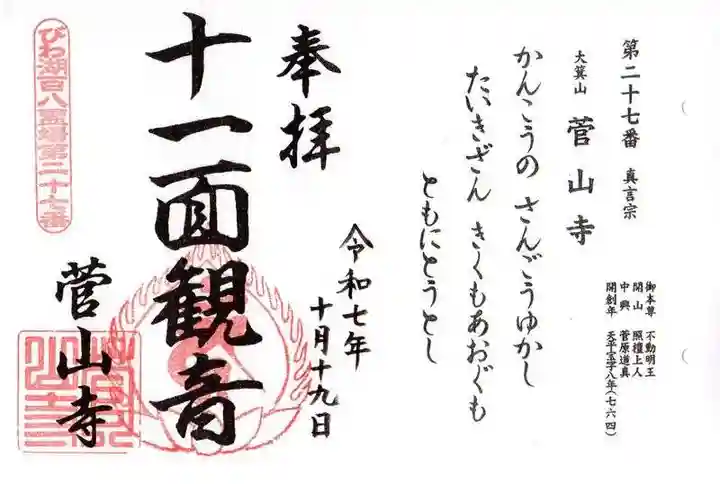 第二十七番 真言宗
大箕山 菅山寺
かんこうの さんごうゆかし
たいきざん きくもあおぐも
ともにとうとし
御本尊 不動明王
開山 照檀上人
中興 菅原道真
開創年 天平宝字八年(七六四)
奉拝
十一面観音
菅山寺
令和七年
十月十九日
びわ湖百八霊場第二十七番